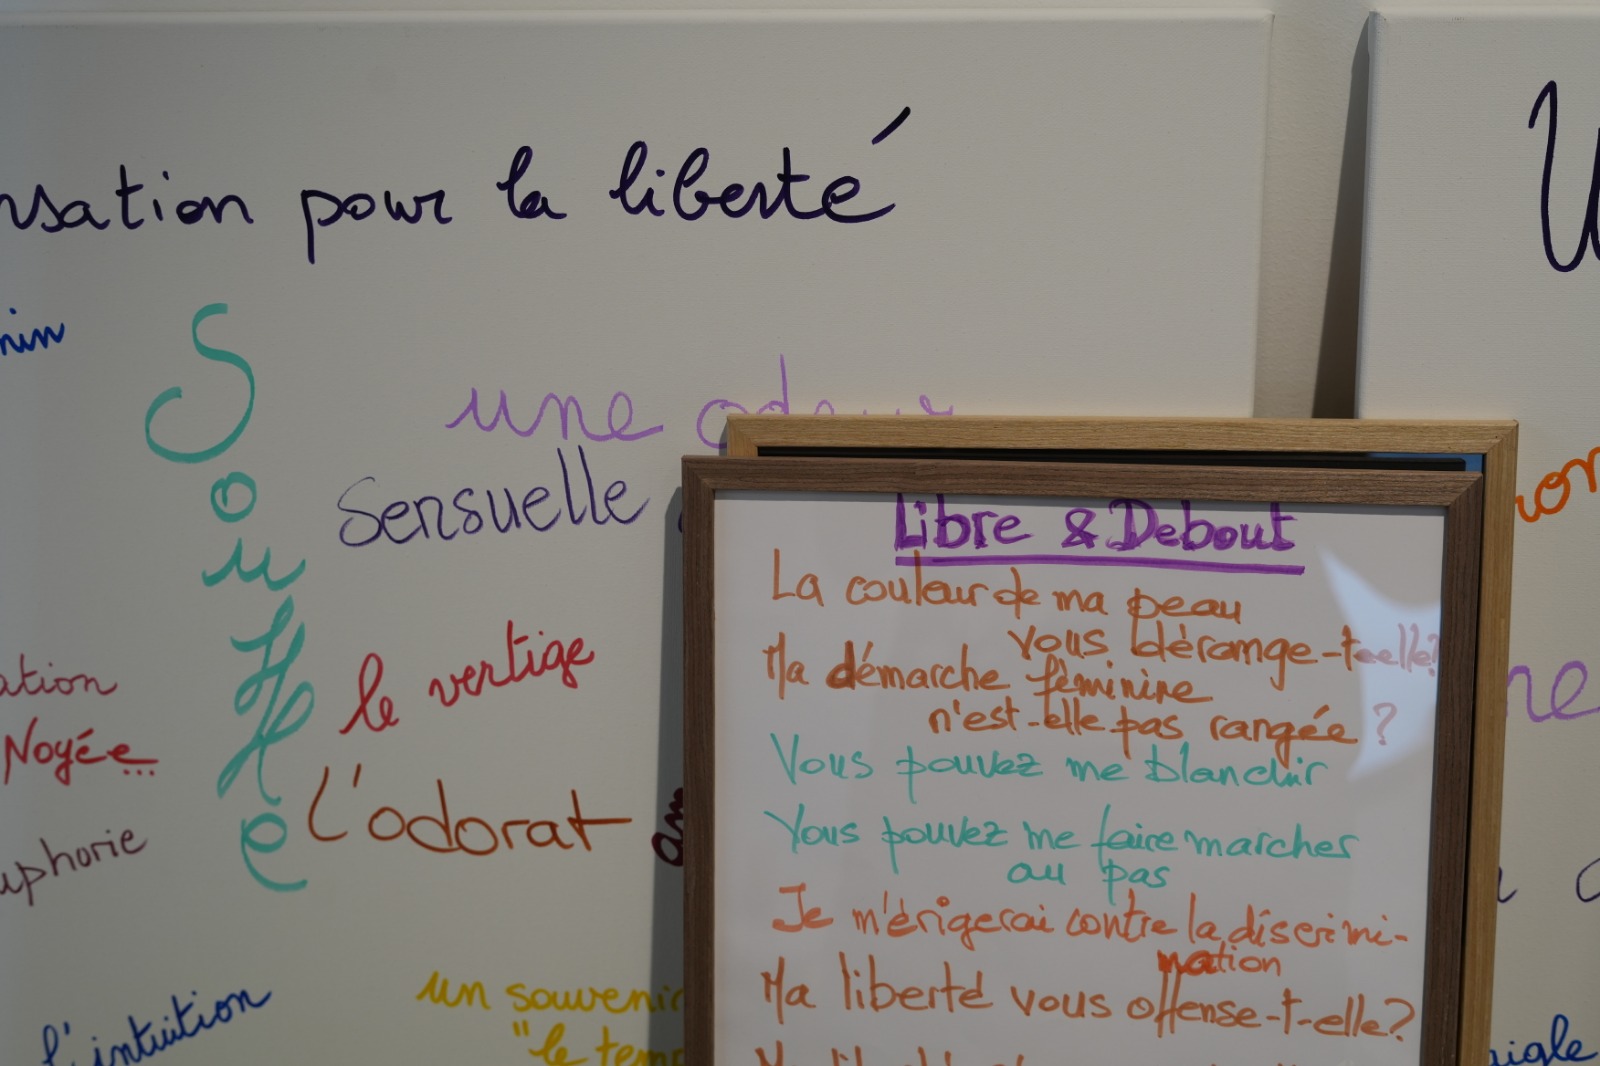 pour la liberté
Souffle
une odeur
Sensuelle
le vertige
Noyée...
L'odorat
l'intuition
un souvenir
"le
Libre & Debout
La couleur de ma peau
vous dérange-t-elle?
Ma démarche féminine
n'est-elle pas rangée ?
Vous pouvez me blanchir
Vous pouvez me faire marcher
au pas
Je m'érigerai contre la discrimi-
nation
Ma liberté vous offense-t-elle?